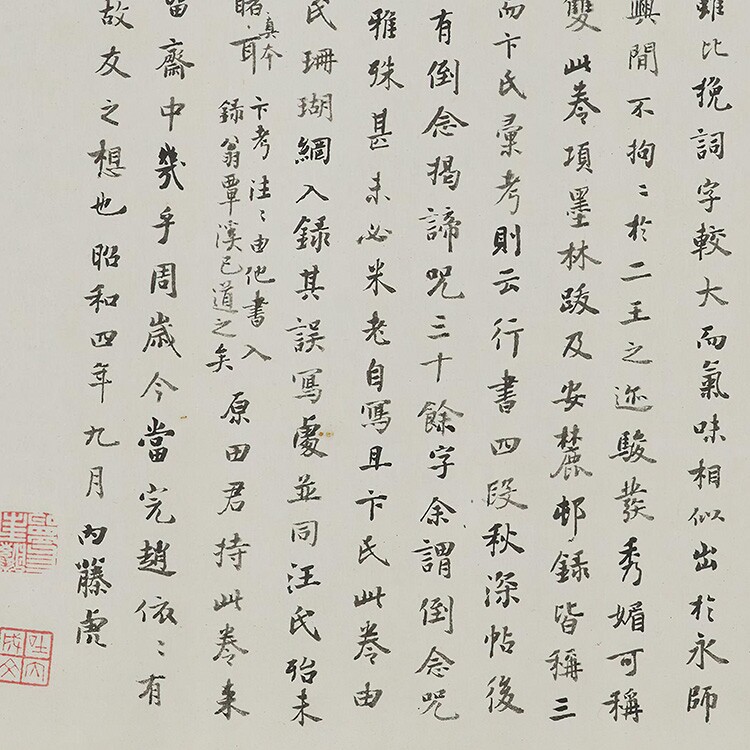 雖比挽詞字較大而氣味相似出於永師
興間不拘〻於二王之迹駿發秀媚可稱
雙此卷項墨林跋及安麓邨錄皆稱三
而卞氏彙考則云行書四段秋深帖後
有倒念揭諦咒三十餘字余謂倒念咒
雅殊甚未必米老自寫且卞氏此卷由
氏珊瑚網入錄其誤寫處並同汪氏殆未
睹真本耳 卞考注〻由他書入錄翁覃溪已道之矣 原田君持此卷来
留齋中幾乎周歲今當完趙依〻有
故友之想也昭和四年九月內藤虎